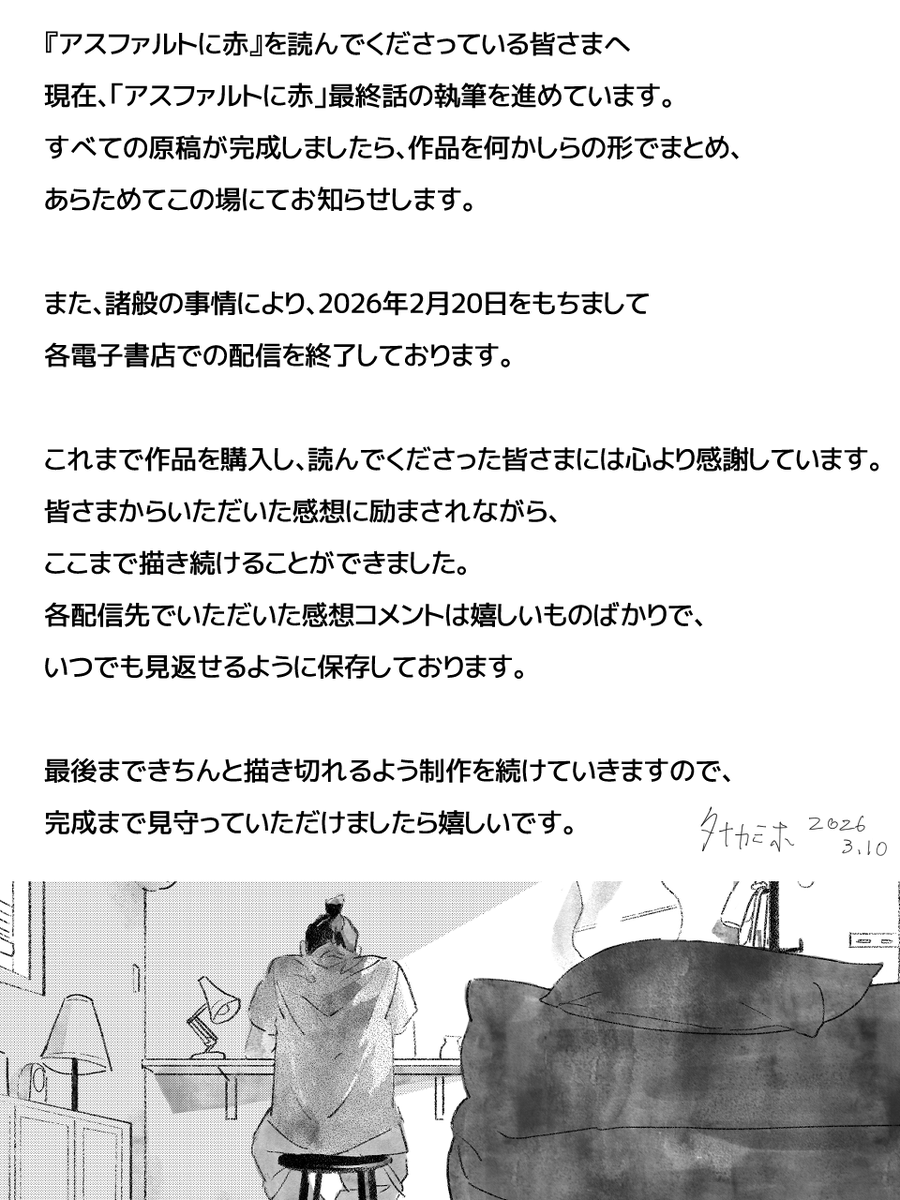 『アスファルトに赤』を読んでくださっている皆さまへ
現在、「アスファルトに赤」最終話の執筆を進めています。
すべての原稿が完成しましたら、作品を何かしらの形でまとめ、
あらためてこの場にてお知らせします。
また、諸般の事情により、2026年2月20日をもちまして
各電子書店での配信を終了しております。
これまで作品を購入し、読んでくださった皆さまには心より感謝しています。
皆さまからいただいた感想に励まされながら、
ここまで描き続けることができました。
各配信先でいただいた感想コメントは嬉しいものばかりで、
いつでも見返せるように保存しております。
最後まできちんと描き切れるよう制作を続けていきますので、
完成まで見守っていただけましたら嬉しいです。
タナカミホ 2026
3.10